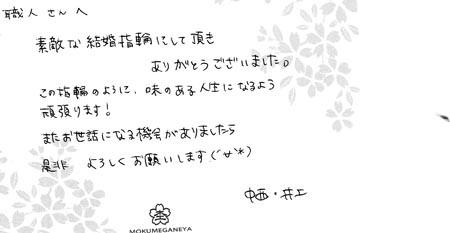 職人さんへ
素敵な結婚指輪にして頂き
ありがとうございました。
この指輪のように、味のある人生になるよう
頑張ります!
またお世話になる機会がありましたら
是非 よろしくお願いします(´ω`*)
中西・井上
MOKUMEGANEYA